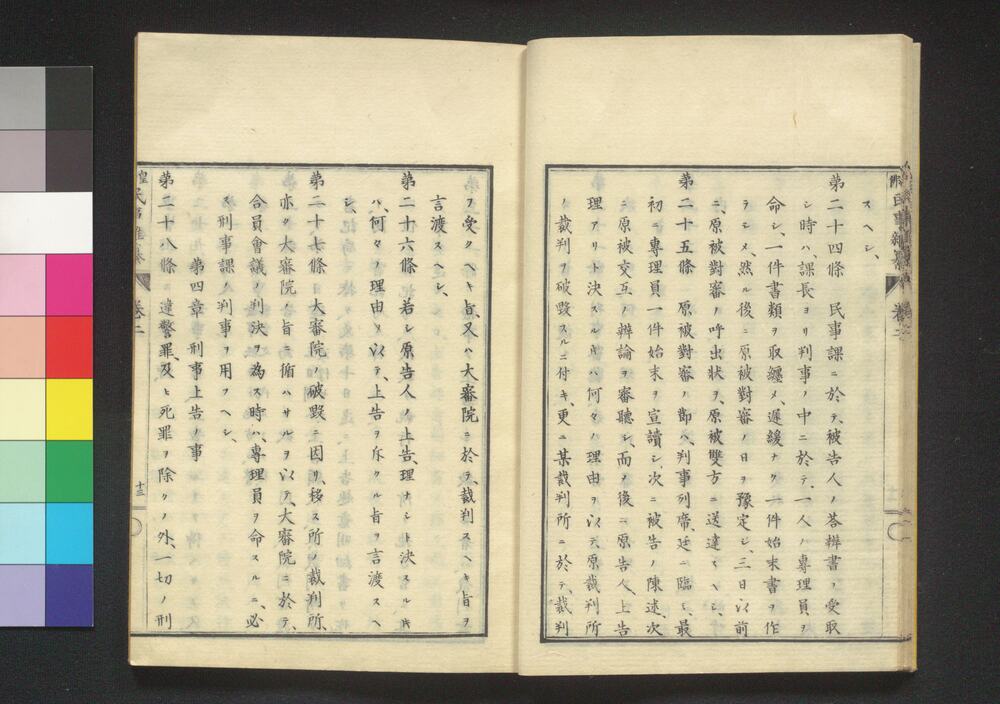 スヘシ、
第二十四條　民事課ニ於テ、被告人ノ答辨書ノ受取
シ時ハ、課長ヨリ判事ノ中ニ於テ、一人ノ專理員ヲ
命シ、一件書類ヲ取纏メ、遲緩ナク一件始末書ヲ作
ラシメ、然ル後ニ原被對審ノ日ヲ豫定シ、三日以前
ニ、原被對審ノ呼出狀ヲ、原被雙方ニ送達スヘシ、
第二十五條　原被對審ノ節ハ、判事列席、廷ニ臨ミ、最
初ニ專理員一件始末ヲ宣讀シ、次ニ被告ノ陳述、次
ニ原被交互ノ辨論ヲ審聽シ、而ノ後ニ原告人、上告
理アリト決スル時ハ、何々ノ理由ヲ以テ、原裁判所
ノ裁判ヲ破毀スルニ付キ、更ニ某裁判所ニ於テ、裁判
ヲ受クヘキ旨、又ハ大審院ニ於テ、裁判スヘキ旨ヲ
言渡スヘシ、
第二十六條　若シ原告人ノ上告、理ナシト決スル時
ハ、何々ノ理由ヲ以テ、上告ヲ斥クル旨ヲ言渡スヘ
シ、
第二十七條　大審院ノ破毀ニ因リ、移ス所ノ裁判所、
亦タ大審院ノ旨ニ循ハサルヲ以テ、大審院ニ於テ、
合員會議ノ判決ヲ為ス時ハ、專理員ヲ命スルニ、必
ス刑事課ノ判事ヲ用フヘシ、
第四章　刑事上告ノ事
第二十八條　違警罪、及ヒ死罪ヲ除クノ外、一切ノ刑
卷二
十三